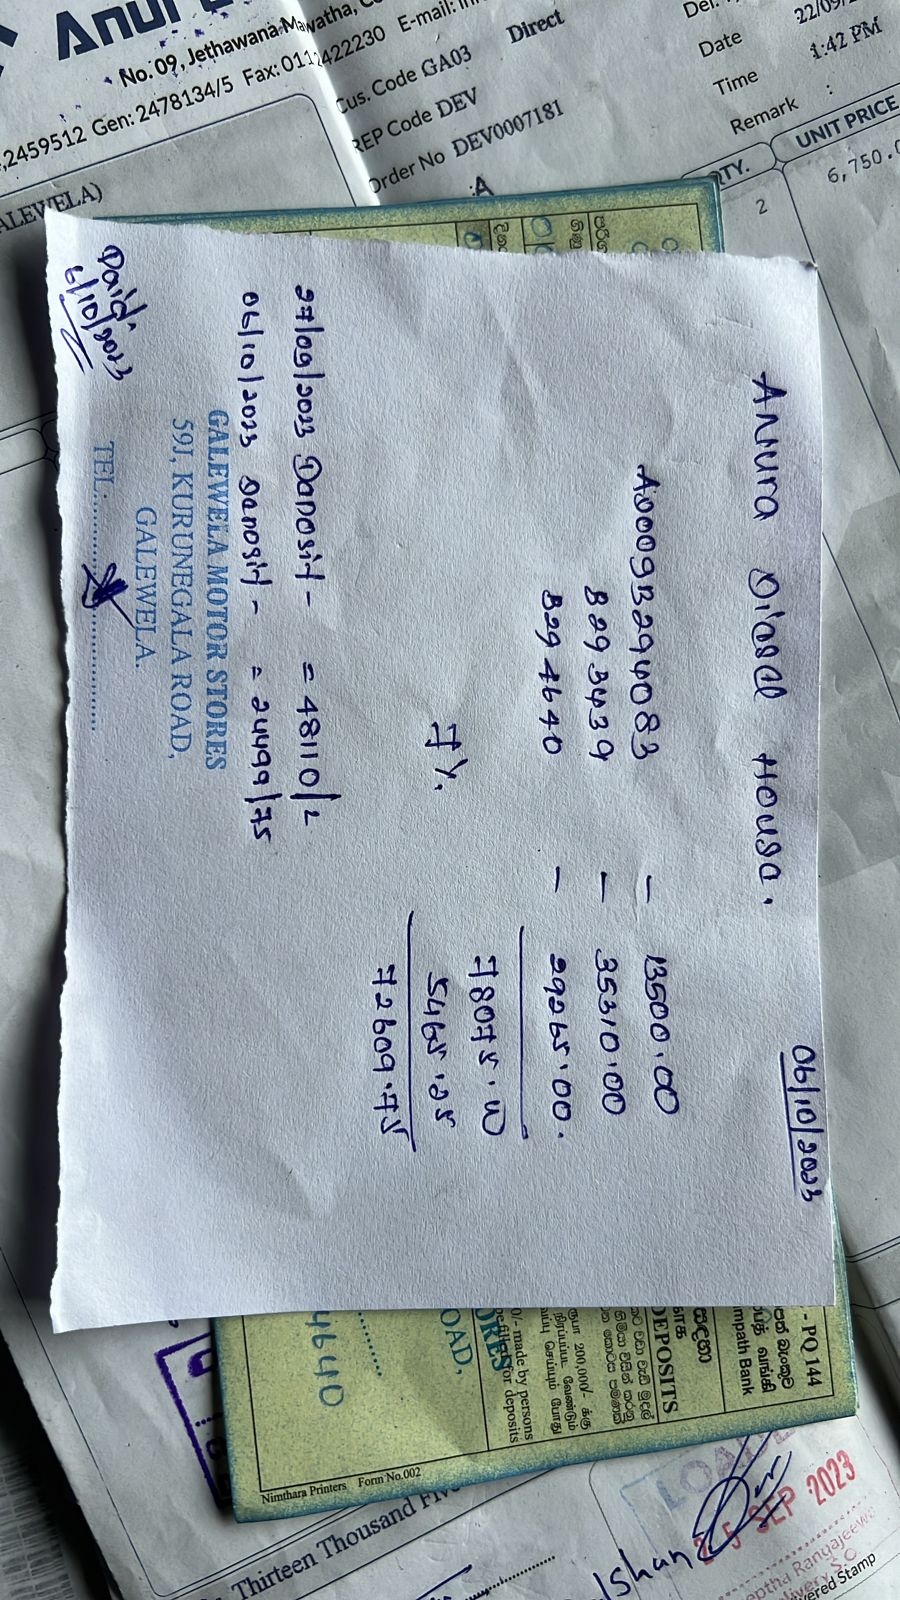 No. 09, Jethawana Mawatha,
2459512 Gen: 2478134/5 Fax: 0112422230 E-mail:
ALEWELA)
Cus. Code GA03 Direct
REP Code DEV
Order No DEV0007181
:A
Date
Time 1:42 PM
Remark :
QTY. UNIT PRICE
2
06/10/2023
Anura Diesel House.
A0009B294083 – 13500.00
B293439 – 35310.00
B294640 – 29265.00.
78075.00
7%. 5465.25
72609.75
27/09/2023 Deposit – = 48110/=
06/10/2023 Deposit – = 24499/75
GALEWELA MOTOR STORES
591, KURUNEGALA ROAD,
GALEWELA.
TEL.
Paid.
6/10/2023
- PQ 144
mpath Bank
DEPOSITS
0/- made by persons
be filled for deposits
ORES
OAD,
4640
Nimthara Printers Form No.002
Thirteen Thousand Five
SEP 2023
vered Stamp